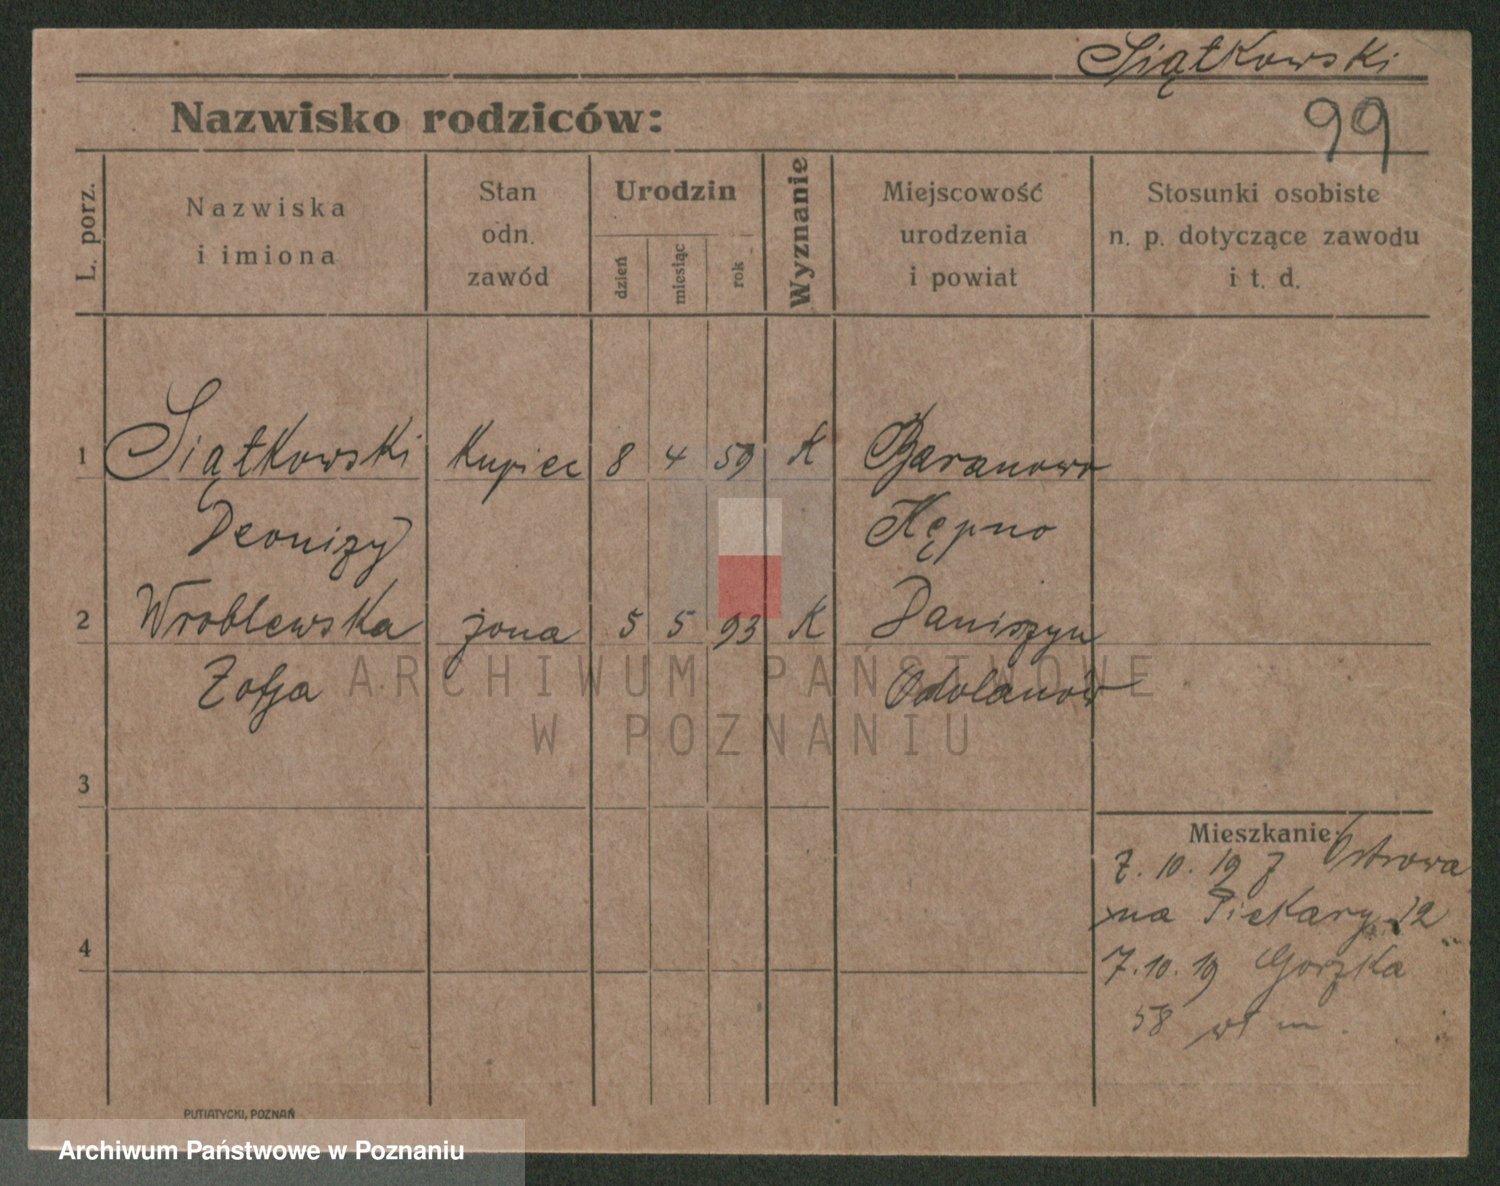 Siątkowski
99
Nazwisko rodziców:
L. porz.
Nazwiska
i imiona
Stan
odn.
zawód
Urodzin
dzień
miesiąc
rok
Wyznanie
Miejscowość
urodzenia
i powiat
Stosunki osobiste
n. p. dotyczące zawodu
i t. d.
1 Siątkowski kupiec 8 4 59 K Baranowo
Deonizy Kępno
2 Wroblewska żona 5 5 93 K Daniszyn
Zofja Odolanów
ARCHIWUM PAŃSTWOWE
W POZNANIU
3
4
Mieszkanie:
7. 10. 19 z Ostrowa
na Piekary 12
7. 10. 19 Gorzka
58 wł m.
PUTIATYCKI, POZNAŃ
Archiwum Państwowe w Poznaniu